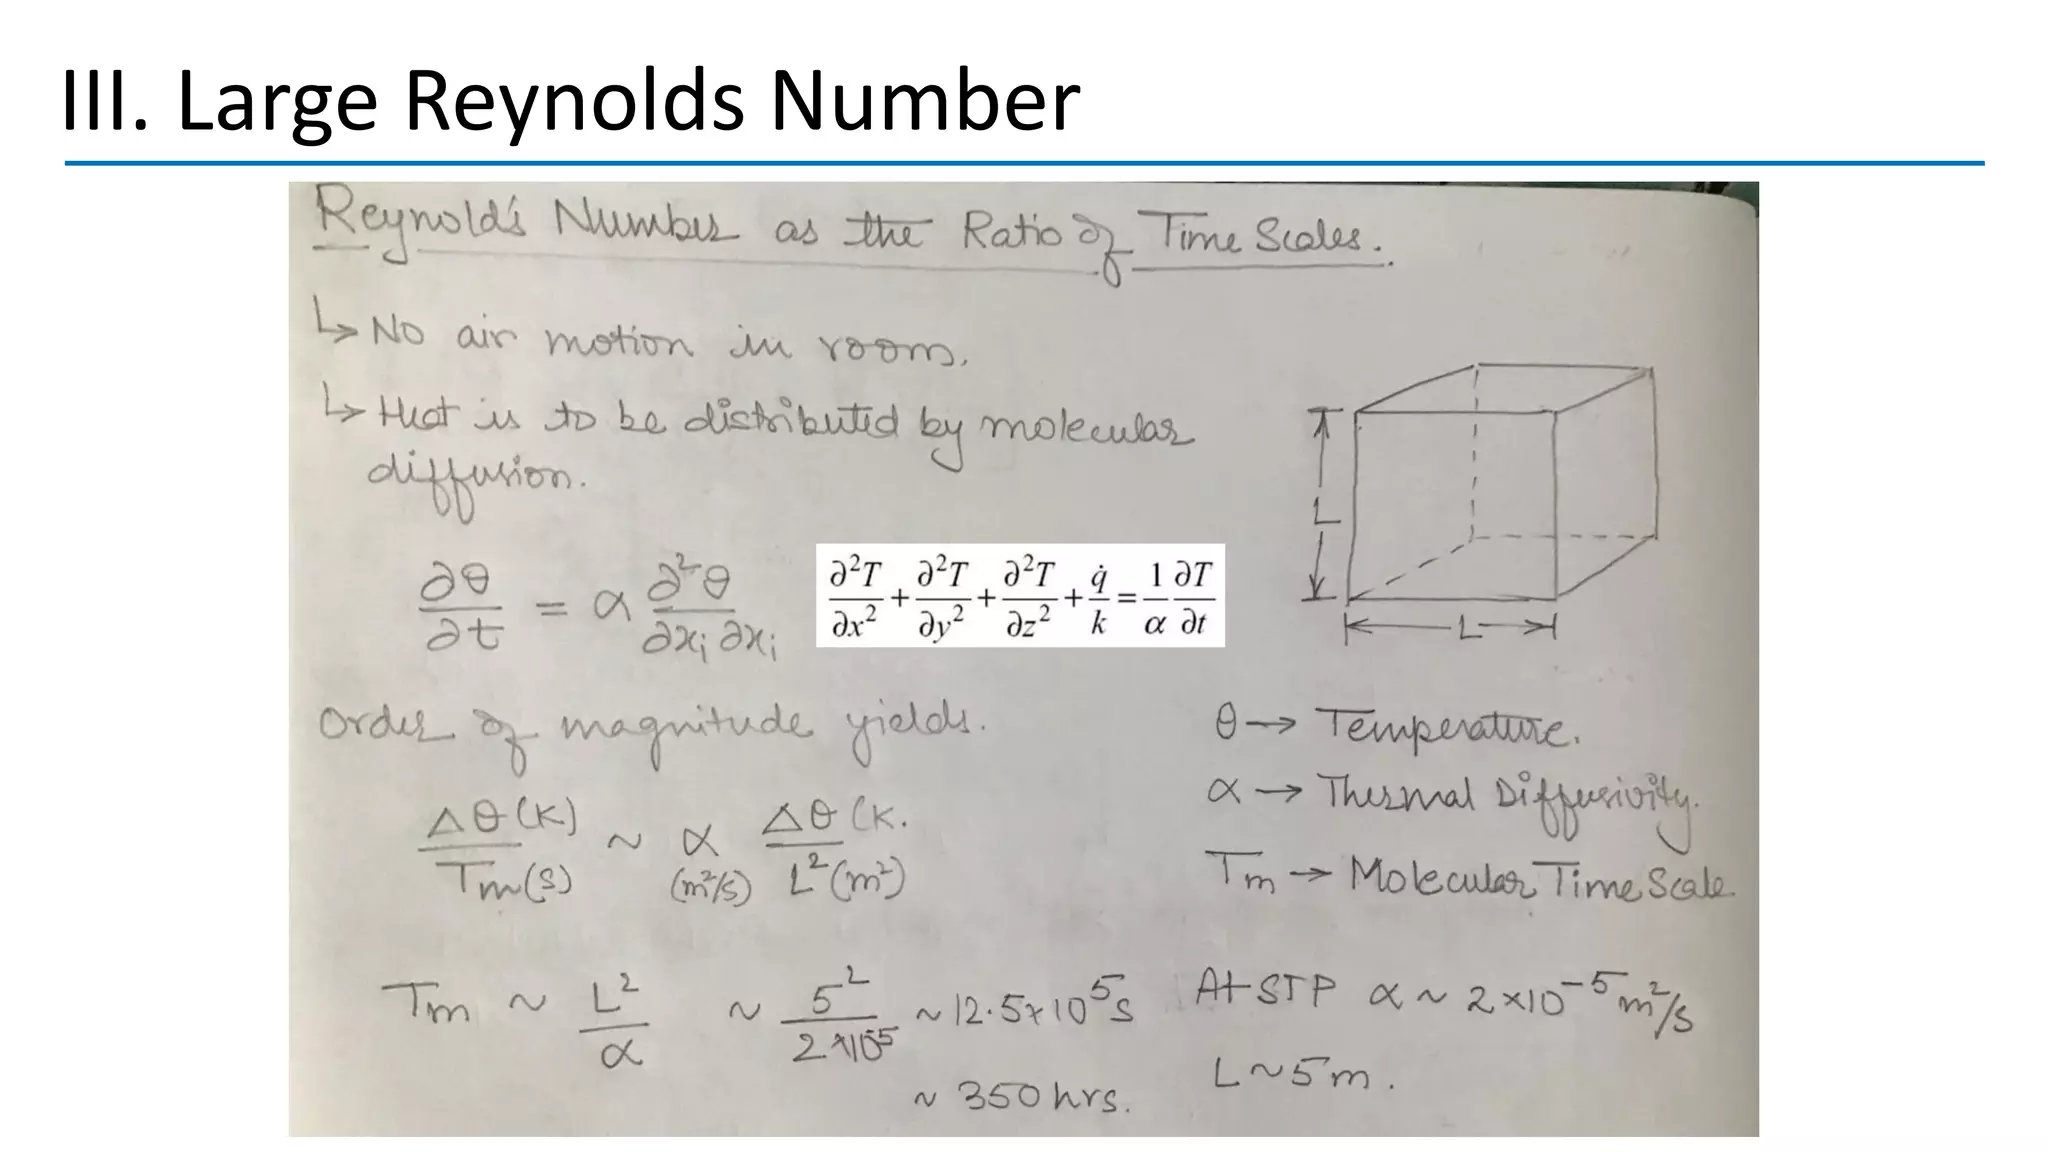 III. Large Reynolds Number
Reynold's Number as the Ratio of Time Scales.
↳ No air motion in room.
↳ Heat is to be distributed by molecular
diffusion.
∂θ/∂t = α ∂²θ/∂xᵢ∂xᵢ
∂²T/∂x² + ∂²T/∂y² + ∂²T/∂z² + q̇/k = 1/α ∂T/∂t
L
L
Order of magnitude yields.
θ → Temperature.
α → Thermal Diffusivity.
Tm → Molecular Time Scale
Δθ (K)/Tm (s) ~ α (m²/s) Δθ (K./L² (m²)
Tm ~ L²/α ~ 5²/2×10⁻⁵ ~ 12.5×10⁵ s
~ 350 hrs.
At STP α ~ 2×10⁻⁵ m²/s
L ~ 5m.